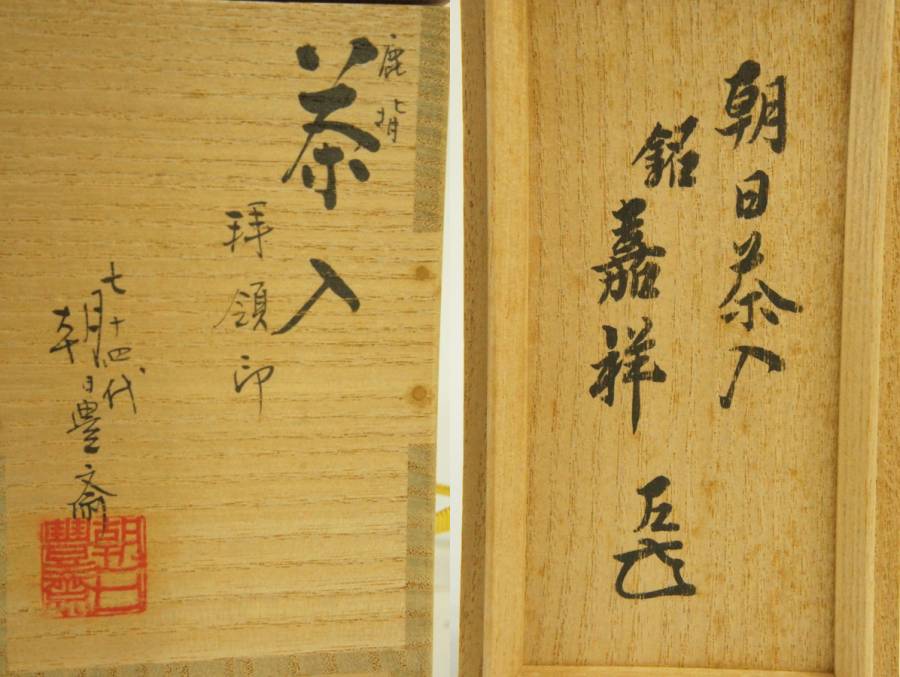 鹿背
茶入
拝領印
七十四代
朝日豊斎
朝日
豊斎
朝日茶入
銘
嘉祥